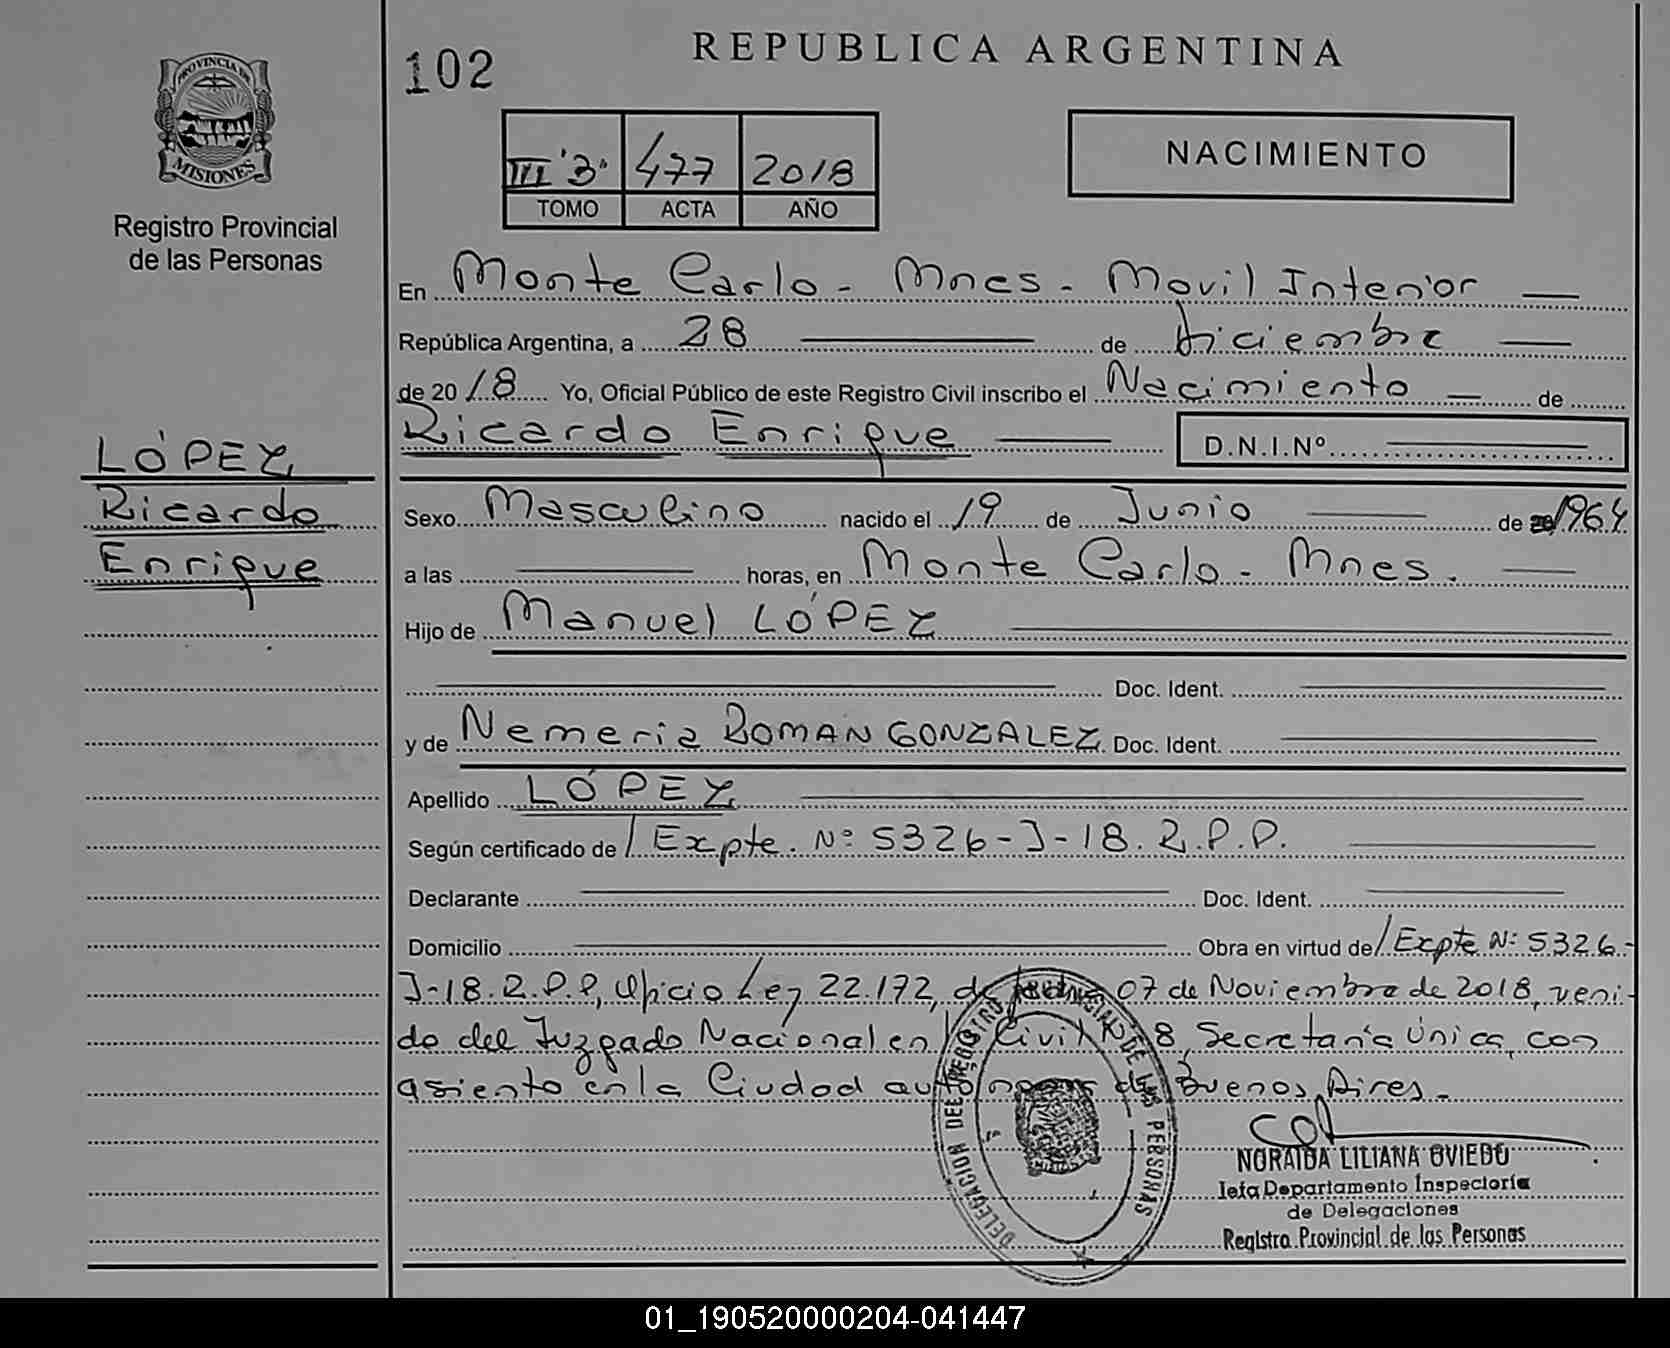 PROVINCIA DE
MISIONES
Registro Provincial
de las Personas
LÓPEZ
Ricardo
Enrique
102
REPUBLICA ARGENTINA
III "3" 477 2018
TOMO ACTA AÑO
NACIMIENTO
En Monte Carlo - Mnes - Movil Interior
República Argentina, a 28 de diciembre
de 20 18 Yo, Oficial Público de este Registro Civil inscribo el Nacimiento de
Ricardo Enrique D.N.I.Nº
Sexo Masculino nacido el 19 de Junio de 1964
a las horas, en Monte Carlo - Mnes.
Hijo de Manuel LÓPEZ
Doc. Ident.
y de Nemeria ROMAN GONZALEZ Doc. Ident.
Apellido LÓPEZ
Según certificado de / Expte. Nº 5326-J-18. R.P.P.
Declarante Doc. Ident.
Domicilio Obra en virtud de / Expte Nº 5326-
J-18.R.P.P, Oficio Ley 22.172, de 07 de Noviembre de 2018, veni-
do del Juzgado Nacional en lo Civil 8, Secretaría Única, con
asiento en la Ciudad autónoma de Buenos Aires.-
DELEGACION DEL REGISTRO PROVINCIAL DE LAS PERSONAS
NORAIDA LILIANA OVIEDO
Jefa Departamento Inspectoría
de Delegaciones
Registro Provincial de las Personas
01_190520000204-041447